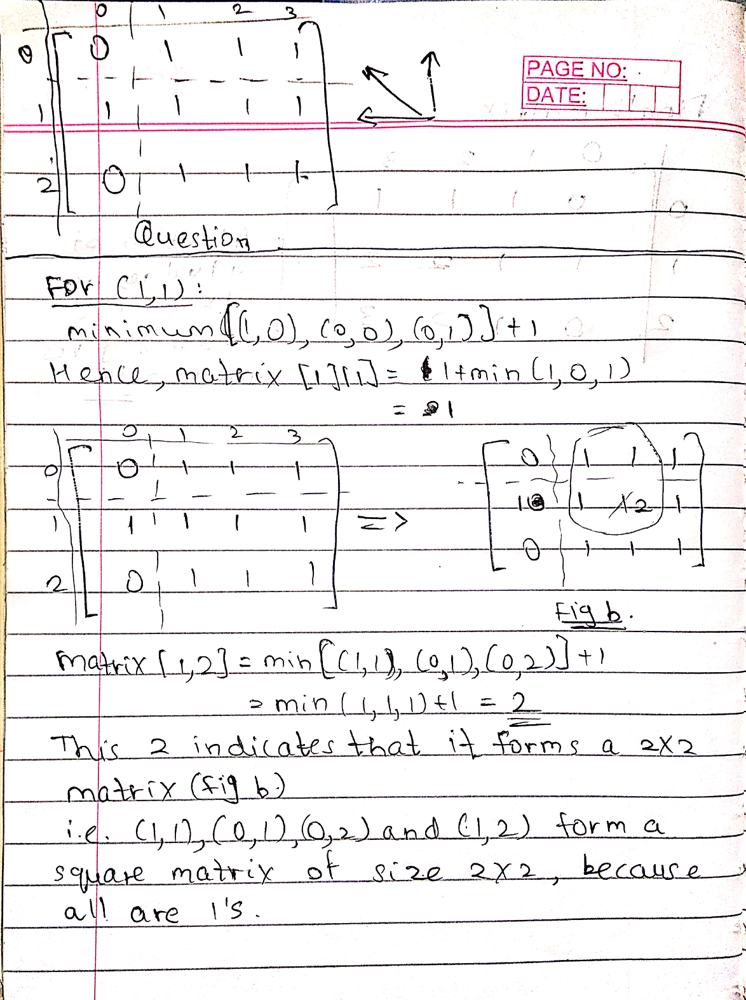 0 1 2 3
0 0 1 1 1
PAGE NO:
DATE:
1 1 1 1 1
2 0 1 1 1
Question
For (1,1):
minimum[(1,0), (0,0), (0,1)] + 1
Hence, matrix [1][1] = 1+min(1,0,1)
= 1
0 1 2 3
0 0 1 1 1
1 1 1 1 1
2 0 1 1 1
=>
0 1 1 1
1 1 2 1
0 1 1 1
Fig b.
matrix [1,2] = min[(1,1), (0,1), (0,2)] + 1
= min(1,1,1)+1 = 2
This 2 indicates that it forms a 2X2
matrix (fig b.)
i.e. (1,1), (0,1), (0,2) and (1,2) form a
square matrix of size 2X2, because
all are 1's.